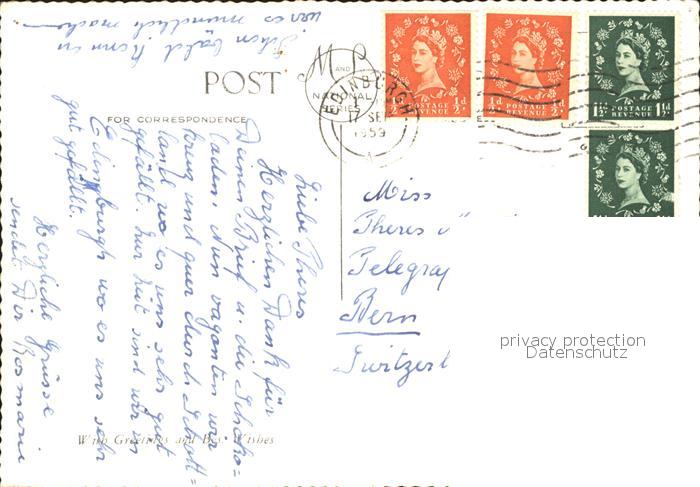 wer es mundlich machen
Schon bald kann ich
POST
M P
AND
NATIONAL
SERIES
EDINBURGH
17 SE
1959
POSTAGE REVENUE ½d
½d POSTAGE REVENUE ½d
1½d POSTAGE REVENUE 1½d
FOR CORRESPONDENCE
Liebe Theres
Herzlichen Dank für
Deinen Brief u. die Schoko=
laden. Nun vaganten wir
kreuz und quer durch Schott=
land wo es uns sehr gut
gefällt. Nur heut sind wir in
Edingburgh wo es uns sehr
gut gefällt.
Herzliche Grüsse
sendet Dir Rosmarie
Miss
Theres
Telegra
Bern
Switzerl
With Greetings and Best Wishes
privacy protection
Datenschutz